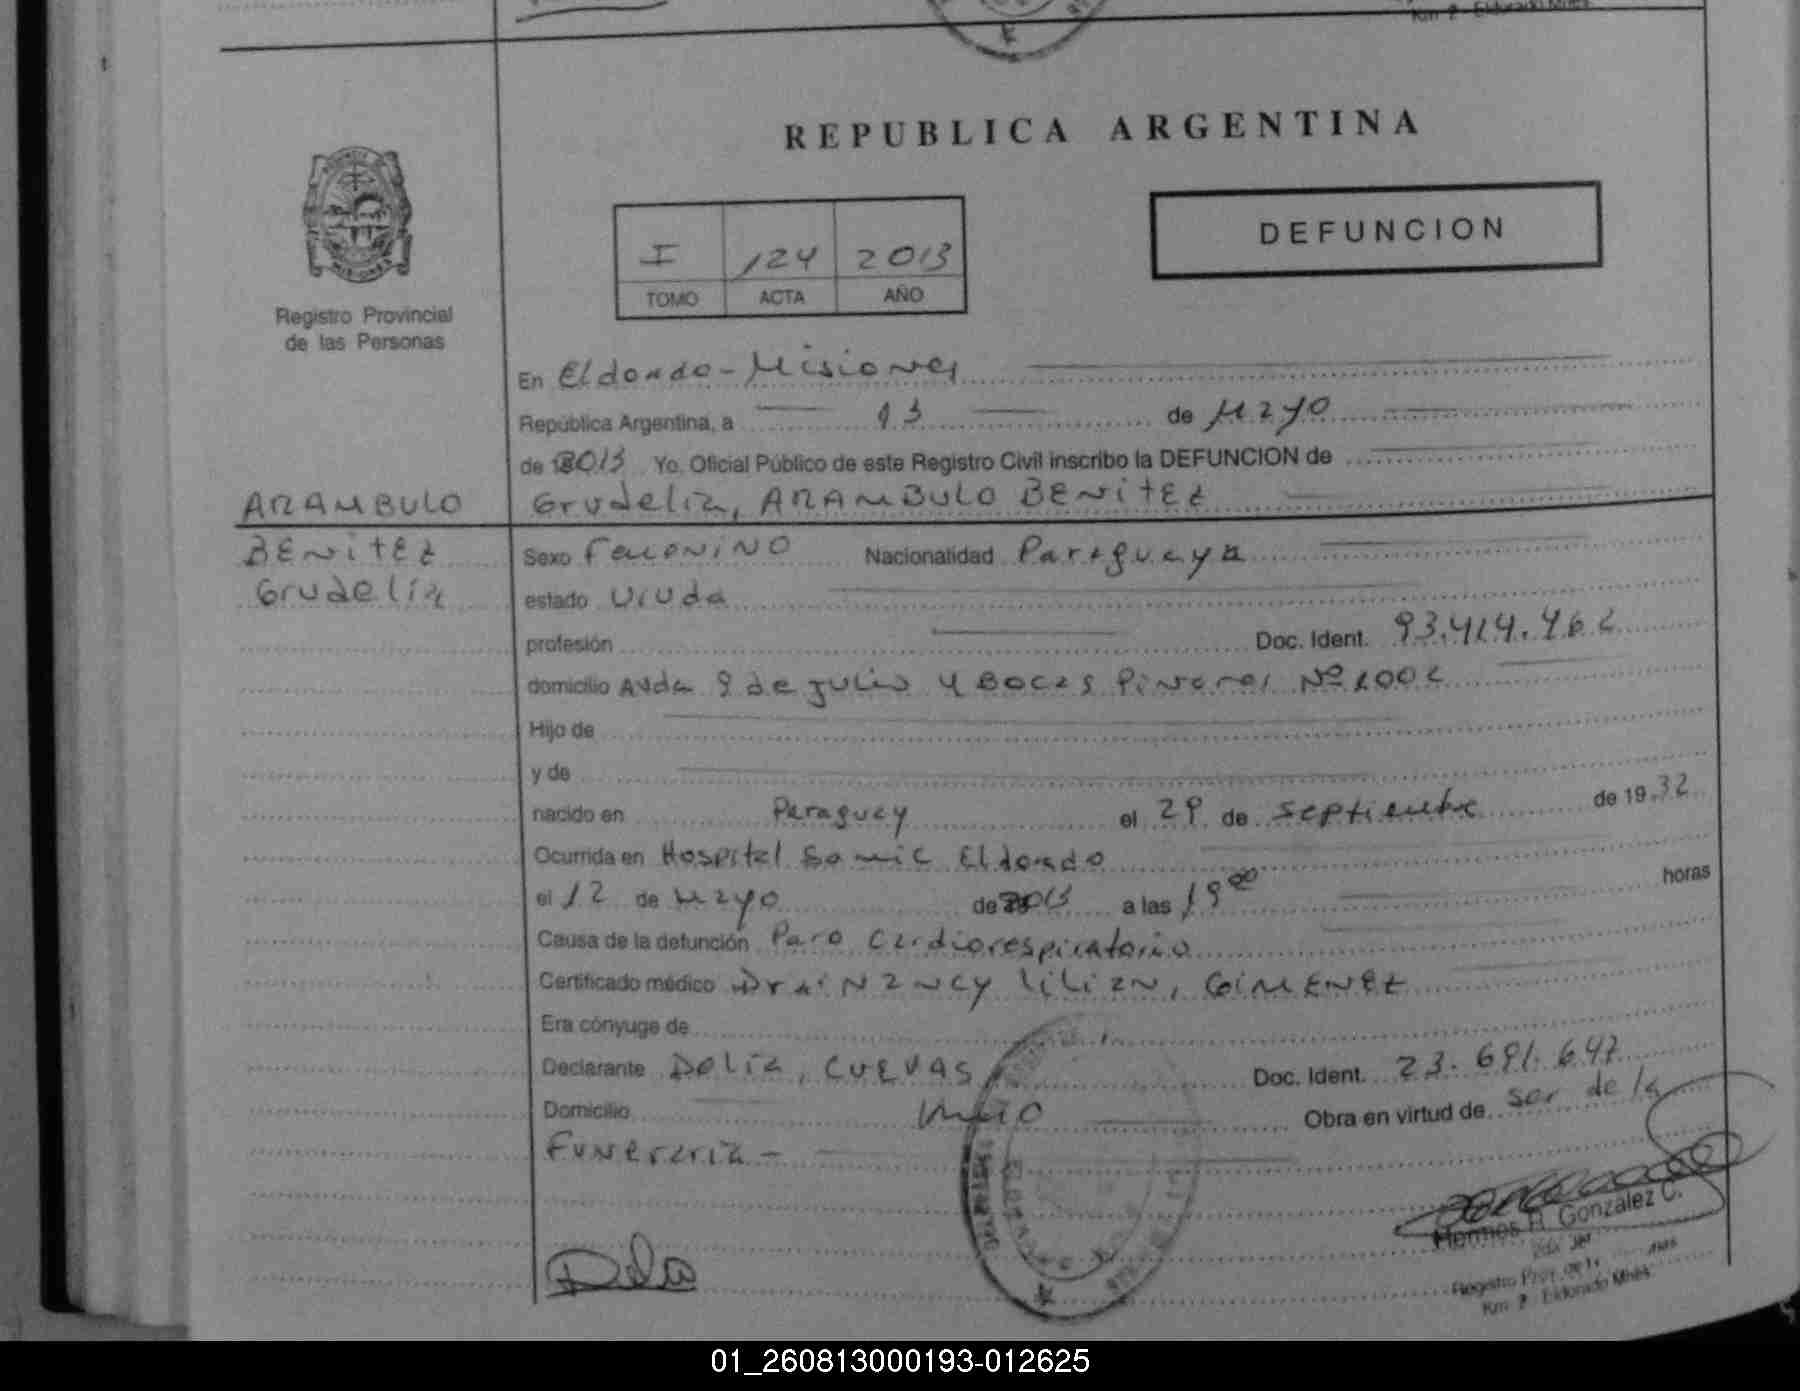 Km 2 - Eldorado Mnes
REPUBLICA ARGENTINA
I 124 2013
TOMO ACTA AÑO
DEFUNCION
Registro Provincial
de las Personas
En Eldorado - Misiones
República Argentina, a 13 de Mayo
de 2013 Yo, Oficial Público de este Registro Civil inscribo la DEFUNCION de
ARAMBULO
BENITEZ
Grudelia
Grudelia, ARAMBULO BENITEZ
Sexo Femenino Nacionalidad Paraguaya
estado Viuda
profesión Doc. Ident. 93.414.462
domicilio Avda 9 de julio y Bocas Pinares Nº 1002
Hijo de
y de
nacido en Paraguay el 29 de septiembre de 1932
Ocurrida en Hospital Samic Eldorado
el 12 de Mayo de 2013 a las 19 00 horas
Causa de la defunción Paro Cardiorespiratorio
Certificado médico Dra: Nancy Lilian, GIMENEZ
Era cónyuge de
Declarante Delia, CUEVAS Doc. Ident. 23.691.647
Domicilio Obra en virtud de ser de la
Funeraria -
Hermes R. González C.
Registro Prov. de las
Km 2 - Eldorado Mnes
01_260813000193-012625